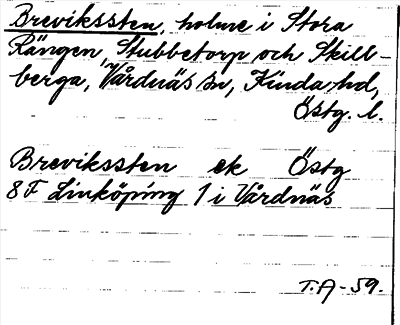 Brevikssten, holme i Stora
Rängen, Stubbetorp och Skill-
berga, Vårdnäs sn, Kinda hd,
Östg. l.
Brevikssten ek Östg
8F Linköping 1 i Vårdnäs
T.A-59.